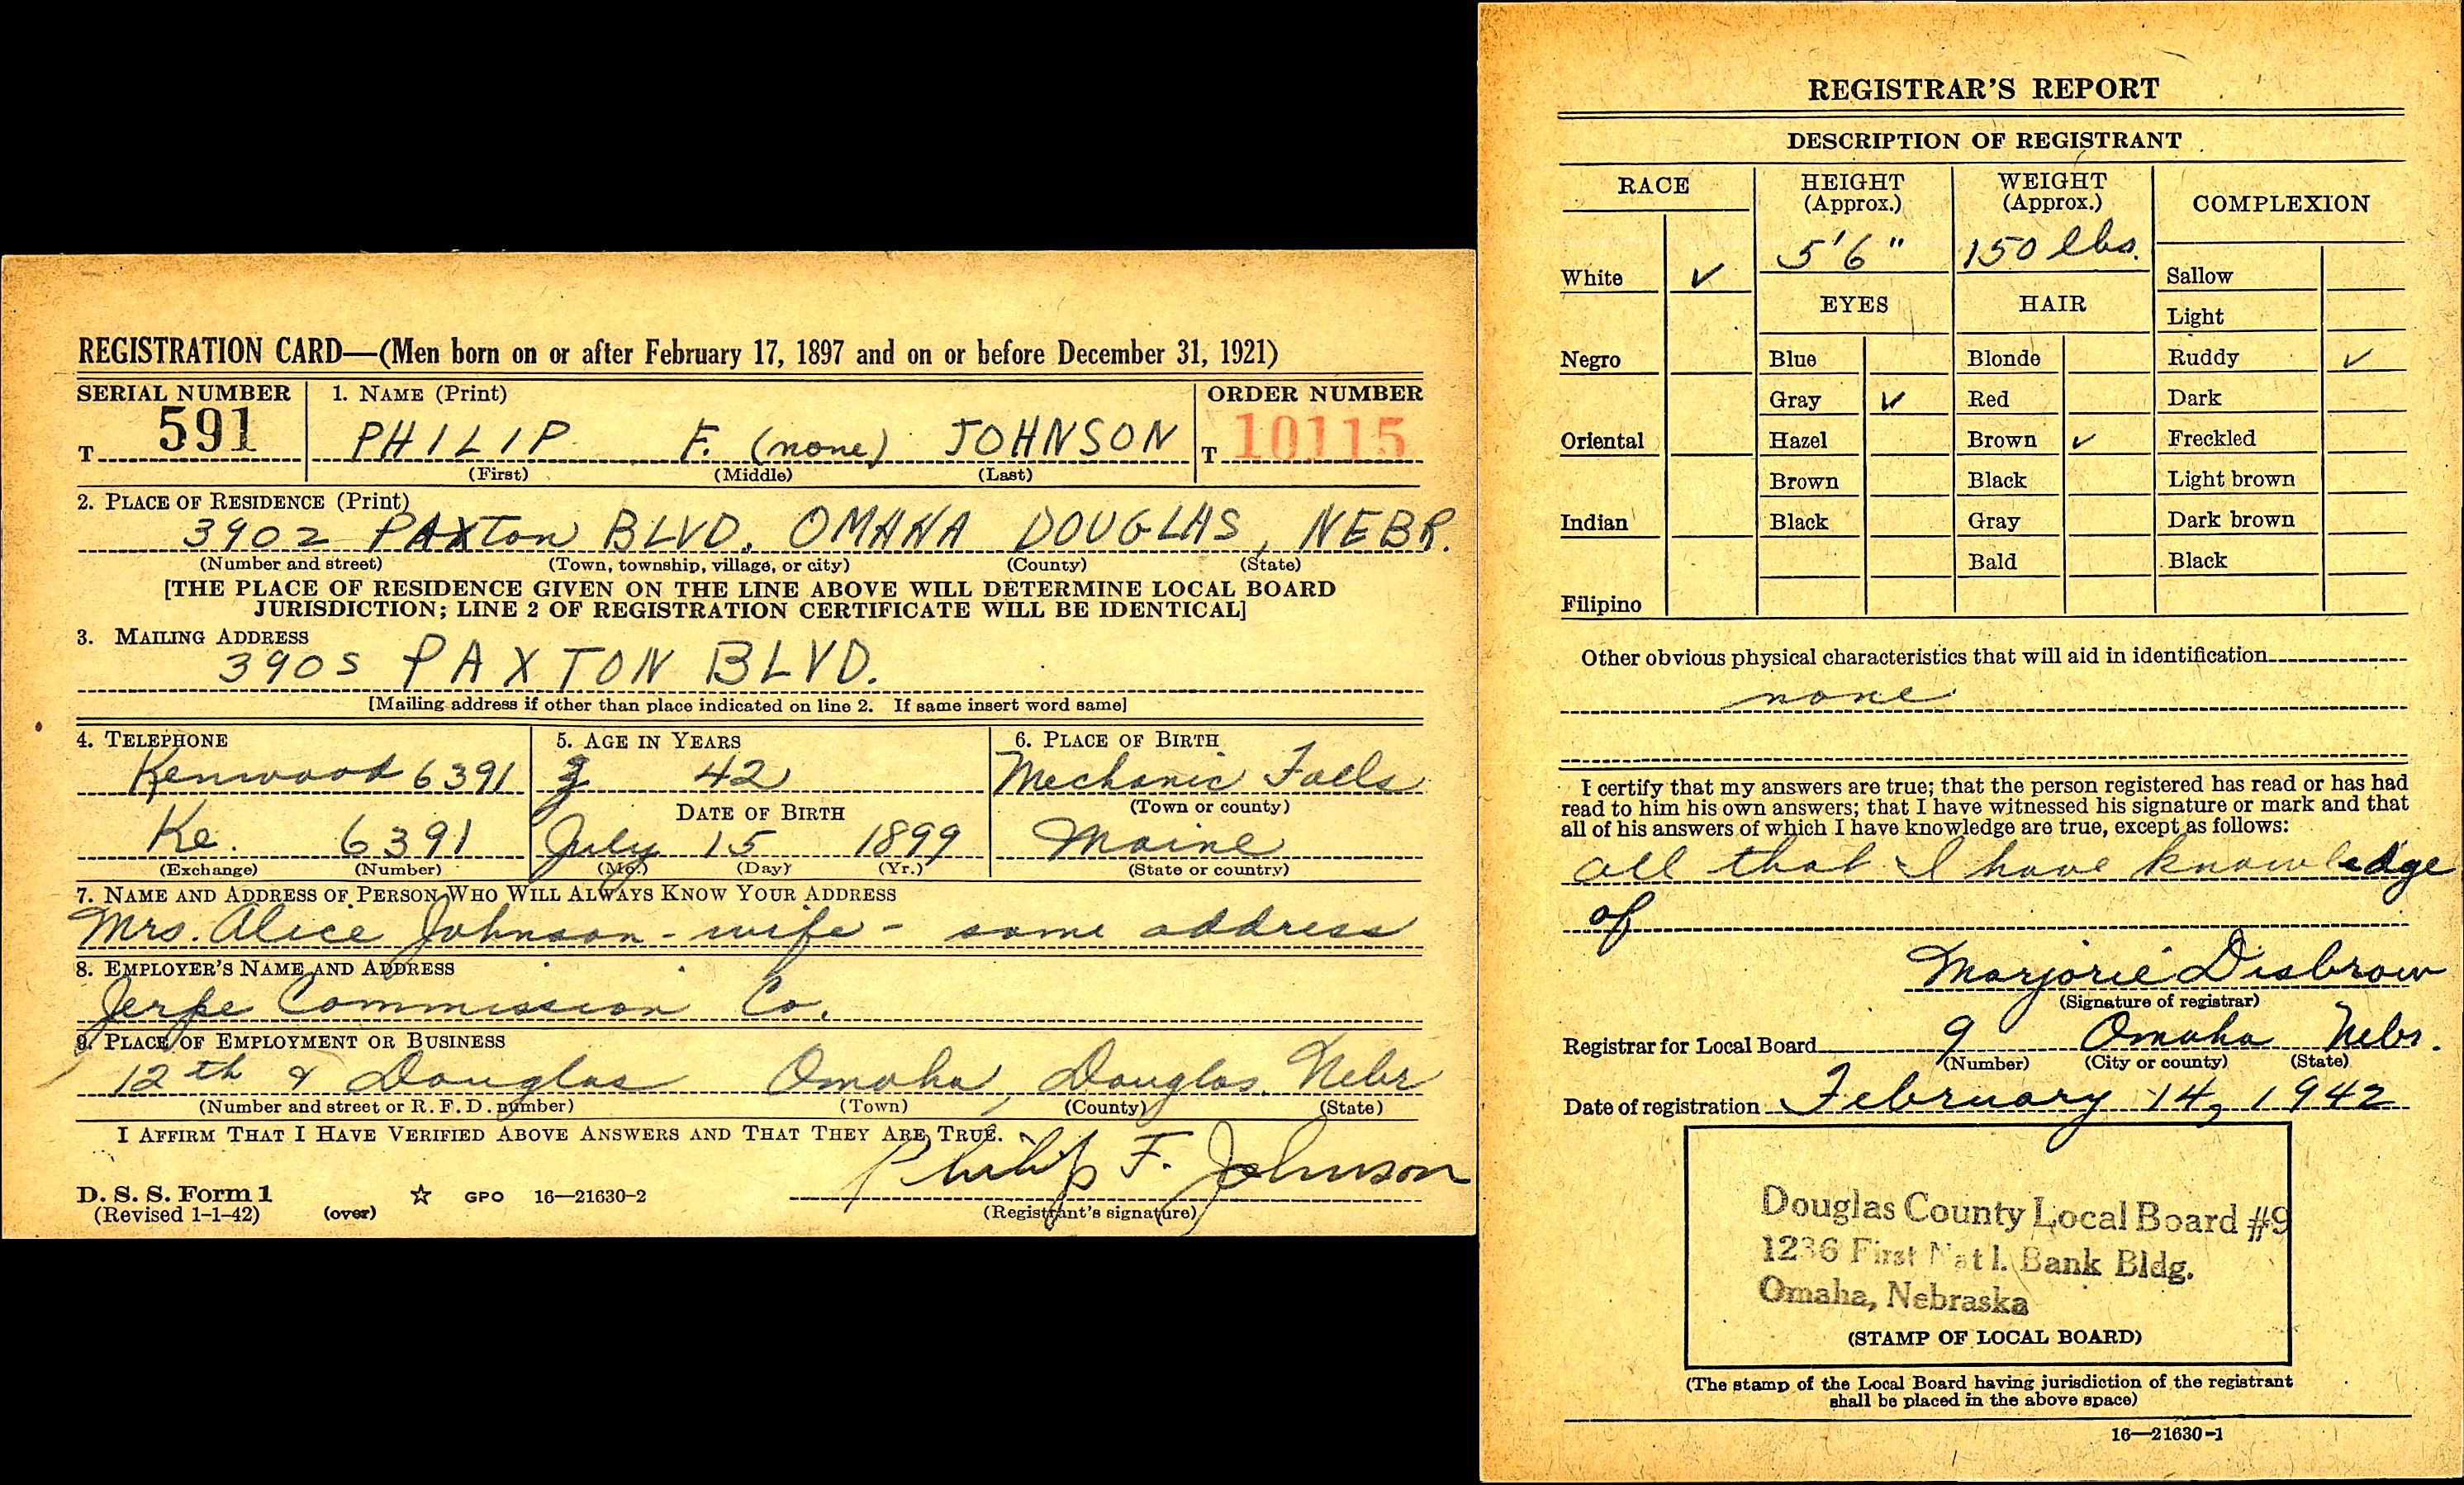 REGISTRATION CARD—(Men born on or after February 17, 1897 and on or before December 31, 1921)
SERIAL NUMBER
1. NAME (Print)
ORDER NUMBER
T 591
PHILIP F. (none) JOHNSON
T 10115
(First) (Middle) (Last)
2. PLACE OF RESIDENCE (Print)
3902 PAXTON BLVD. OMAHA DOUGLAS, NEBR.
(Number and street) (Town, township, village, or city) (County) (State)
[THE PLACE OF RESIDENCE GIVEN ON THE LINE ABOVE WILL DETERMINE LOCAL BOARD
JURISDICTION; LINE 2 OF REGISTRATION CERTIFICATE WILL BE IDENTICAL]
3. MAILING ADDRESS
PAXTON BLVD.
[Mailing address if other than place indicated on line 2. If same insert word same]
4. TELEPHONE
5. AGE IN YEARS
6. PLACE OF BIRTH
Kenwood 6391
42
Mechanic Falls
DATE OF BIRTH
(Town or county)
Ke. 6391
July 15 1899
Maine
(Exchange) (Number)
(Mo.) (Day) (Yr.)
(State or country)
7. NAME AND ADDRESS OF PERSON WHO WILL ALWAYS KNOW YOUR ADDRESS
Mrs. Alice Johnson - wife - same address
8. EMPLOYER'S NAME AND ADDRESS
Jerpe Commission Co.
9. PLACE OF EMPLOYMENT OR BUSINESS
12th & Douglas Omaha, Douglas, Nebr
(Number and street or R. F. D. number) (Town) (County) (State)
I AFFIRM THAT I HAVE VERIFIED ABOVE ANSWERS AND THAT THEY ARE TRUE.
Philip F. Johnson
D. S. S. Form 1
(Revised 1-1-42) (over) ☆ GPO 16—21630-2
(Registrant's signature)
REGISTRAR'S REPORT
DESCRIPTION OF REGISTRANT
RACE
HEIGHT (Approx.)
WEIGHT (Approx.)
COMPLEXION
5'6"
150 lbs.
White ✓
Sallow
EYES
HAIR
Light
Negro
Blue
Blonde
Ruddy ✓
Gray ✓
Red
Dark
Oriental
Hazel
Brown ✓
Freckled
Brown
Black
Light brown
Indian
Black
Gray
Dark brown
Bald
Black
Filipino
Other obvious physical characteristics that will aid in identification
none
I certify that my answers are true; that the person registered has read or has had
read to him his own answers; that I have witnessed his signature or mark and that
all of his answers of which I have knowledge are true, except as follows:
all that I have knowledge
of
Marjorie Disbrow
(Signature of registrar)
Registrar for Local Board 9 Omaha Nebr.
(Number) (City or county) (State)
Date of registration February 14, 1942
Douglas County Local Board #9
1236 First Nat'l. Bank Bldg.
Omaha, Nebraska
(STAMP OF LOCAL BOARD)
(The stamp of the Local Board having jurisdiction of the registrant
shall be placed in the above space)
16—21630-1